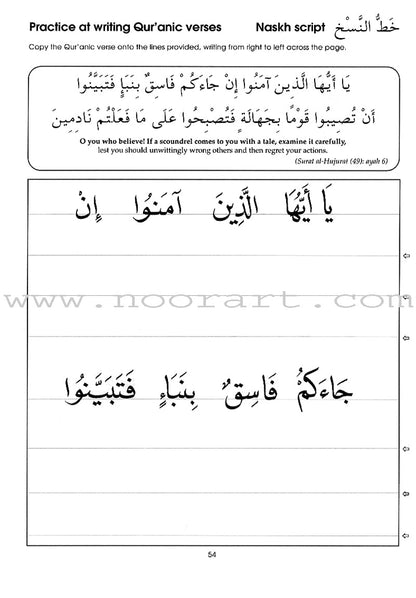 Practice at writing Qur'anic verses Naskh script خَطُّ النَّسْخِ
Copy the Qur'anic verse onto the lines provided, writing from right to left across the page.
يَا أَيُّهَا الَّذِينَ آمَنُوا إِنْ جَاءَكُمْ فَاسِقٌ بِنَبَإٍ فَتَبَيَّنُوا
أَنْ تُصِيبُوا قَوْمًا بِجَهَالَةٍ فَتُصْبِحُوا عَلَى مَا فَعَلْتُمْ نَادِمِينَ
O you who believe! If a scoundrel comes to you with a tale, examine it carefully,
lest you should unwittingly wrong others and then regret your actions.
(Surat al-Hujurat (49): ayah 6)
يَا أَيُّهَا الَّذِينَ آمَنُوا إِنْ
www.noorart.com
جَاءَكُمْ فَاسِقٌ بِنَبَاءٍ فَتَبَيَّنُوا
54